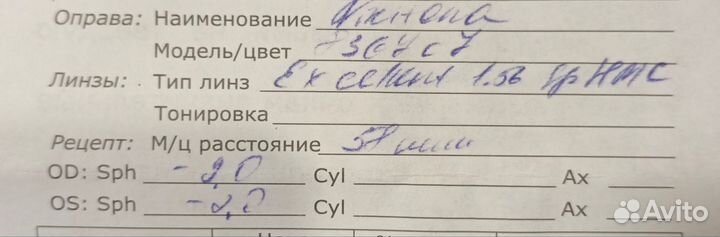 Оправа: Наименование
Модель/цвет
Линзы: Тип линз Excellent 1.56 HMC
Тонировка
Рецепт: М/ц расстояние 57 мм
OD: Sph -2,0 Cyl Ax
OS: Sph -2,0 Cyl Ax
Avito